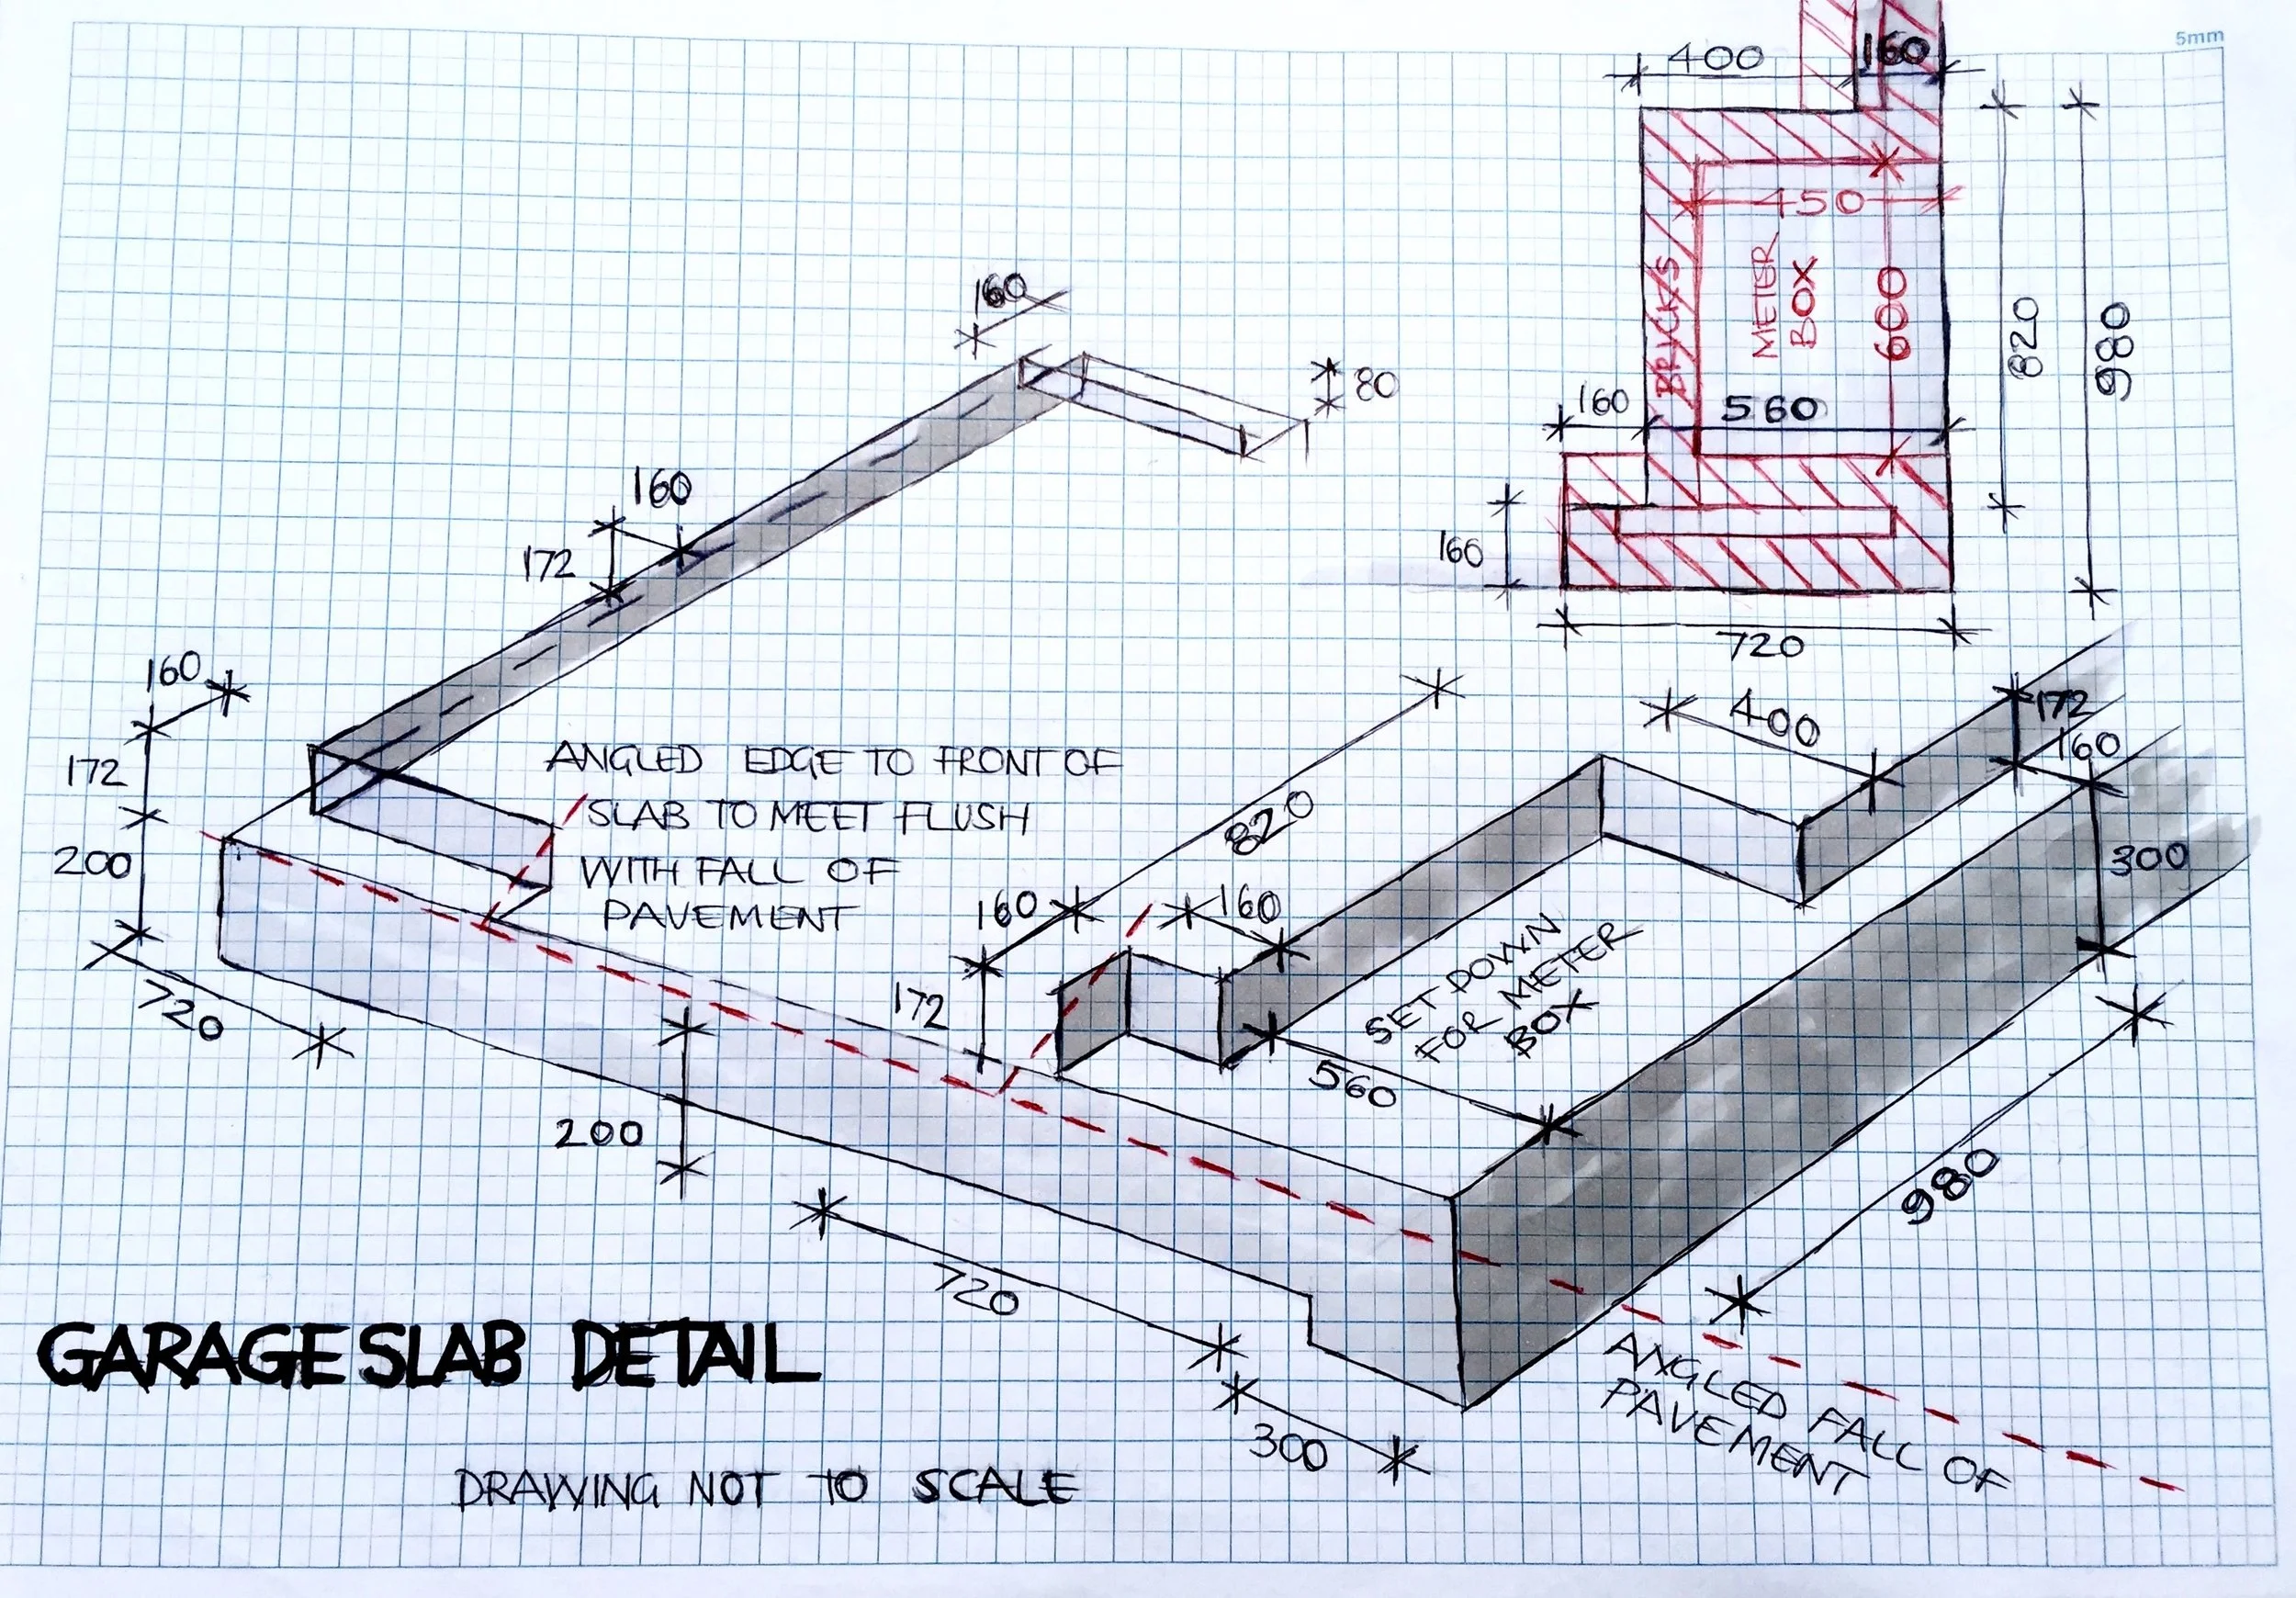 5mm
400
160
450
METER
BOX
BRICKS
600
820
980
160
560
160
720
160
80
160
172
160
172
200
720
ANGLED EDGE TO FRONT OF
SLAB TO MEET FLUSH
WITH FALL OF
PAVEMENT
820
400
172
160
300
160
160
172
SET DOWN
FOR METER
BOX
560
200
980
720
300
ANGLED FALL OF
PAVEMENT
GARAGE SLAB DETAIL
DRAWING NOT TO SCALE